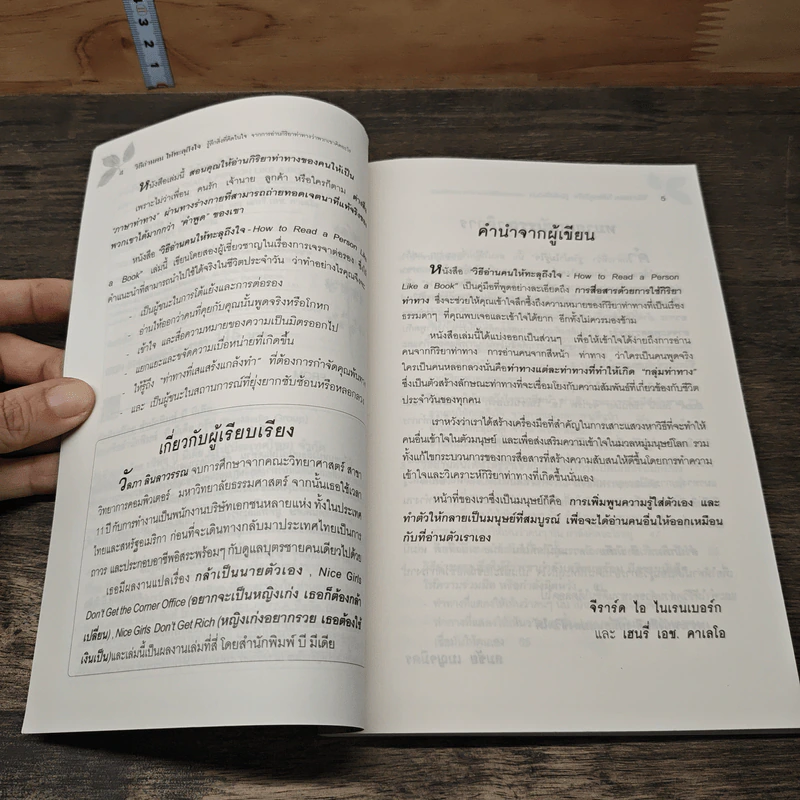 4
3
2
1
4 วิธีอ่านคน ให้ทะลุถึงใจ รู้ลึกสิ่งที่คิดในใจ จากการอ่านกิริยาท่าทาง
หนังสือเล่มนี้ สอนคุณให้อ่านกิริยาท่าทางของคนให้เป็น
เพราะไม่ว่าเพื่อน คนรัก เจ้านาย ลูกค้า หรือใครก็ตาม
"ภาษาท่าทาง" ผ่านทางร่างกายที่สามารถถ่ายทอดเจตนาที่แท้จริงของ
พวกเขาได้มากกว่า "คำพูด" ของเขา
หนังสือ วิธีอ่านคนให้ทะลุถึงใจ - How to Read a Person Like
a Book" เล่มนี้ เขียนโดยสองผู้เชี่ยวชาญในเรื่องการเจรจาต่อรอง
คำแนะนำที่สามารถนำไปใช้ได้จริงในชีวิตประจำวัน ว่าทำอย่างไรคุณจึง
- เป็นผู้ชนะในการโต้แย้งและการต่อรอง
- อ่านให้ออกว่าคนที่คุยกับคุณนั้นพูดจริงหรือโกหก
- เข้าใจ และสื่อความหมายของความเป็นมิตรออกไป
- แยกแยะและขจัดความเบื่อหน่ายที่เกิดขึ้น
- ให้รู้ถึง "ท่าทางที่เสแสร้งแกล้งทำ" ที่ต้องการกำจัดคุณ
- และ เป็นผู้ชนะในสถานการณ์ที่ยุ่งยากซับซ้อนหรือหลอกลวง
เกี่ยวกับผู้เรียบเรียง
วัลภา ลินลาวรรณ จบการศึกษาจากคณะวิทยาศาสตร์ สาขา
วิทยาการคอมพิวเตอร์ มหาวิทยาลัยธรรมศาสตร์ จากนั้นเธอใช้เวลา
11 ปี กับการทำงานเป็นพนักงานบริษัทเอกชนหลายแห่ง ทั้งในประเทศ
ไทยและสหรัฐอเมริกา ก่อนที่จะเดินทางกลับมาประเทศไทยเป็นการ
ถาวร และประกอบอาชีพอิสระพร้อมๆ กับดูแลบุตรชายคนเดียวไปด้วย
เธอมีผลงานแปลเรื่อง กล้าเป็นนายตัวเอง , Nice Girls
Don't Get the Corner Office (อยากจะเป็นหญิงเก่ง เธอก็ต้องกล้า
เปลี่ยน) , Nice Girls Don't Get Rich (หญิงเก่งอยากรวย เธอต้องใช้
เงินเป็น) และเล่มนี้เป็นผลงานเล่มที่สี่ โดยสำนักพิมพ์ บี มีเดีย
5
คำนำจากผู้เขียน
หนังสือ "วิธีอ่านคนให้ทะลุถึงใจ - How to Read a Person
Like a Book" เป็นคู่มือที่พูดอย่างละเอียดถึง การสื่อสารด้วยการใช้กิริยา
ท่าทาง ซึ่งจะช่วยให้คุณเข้าใจลึกซึ้งถึงความหมายของกิริยาท่าทางที่เป็นเรื่อง
ธรรมดาๆ ที่คุณพบเจอและเข้าใจได้ยาก อีกทั้งไม่ควรมองข้าม
หนังสือเล่มนี้ได้แบ่งออกเป็นส่วนๆ เพื่อให้เข้าใจได้ง่ายถึงการอ่าน
คนจากกิริยาท่าทาง การอ่านคนจากสีหน้า ท่าทาง ว่าใครเป็นคนพูดจริง
ใครเป็นคนหลอกลวงนั่นคือท่าทางแต่ละท่าทางที่ทำให้เกิด "กลุ่มท่าทาง"
ซึ่งเป็นตัวสร้างลักษณะท่าทางที่จะเชื่อมโยงกับความสัมพันธ์ที่เกี่ยวข้องกับชีวิต
ประจำวันของทุกคน
เราหวังว่าเราได้สร้างเครื่องมือที่สำคัญในการเสาะแสวงหาวิธีที่จะทำให้
คนอื่นเข้าใจในตัวมนุษย์ และเพื่อส่งเสริมความเข้าใจในมวลหมู่มนุษย์โลก รวม
ทั้งแก้ไขกระบวนการของการสื่อสารที่สร้างความสับสนให้ดีขึ้นโดยการทำความ
เข้าใจและวิเคราะห์กิริยาท่าทางที่เกิดขึ้นนั่นเอง
หน้าที่ของเราซึ่งเป็นมนุษย์ก็คือ การเพิ่มพูนความรู้ใส่ตัวเอง และ
ทำตัวให้กลายเป็นมนุษย์ที่สมบูรณ์ เพื่อจะได้อ่านคนอื่นให้ออกเหมือน
กับที่อ่านตัวเราเอง
จีราร์ด ไอ ไนเรนเบอร์ก
และ เฮนรี่ เอช. คาเลโอ